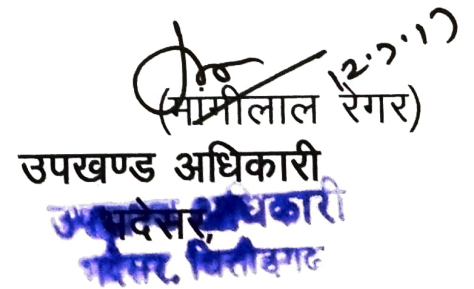 12.7.17
(मांगीलाल रेगर)
उपखण्ड अधिकारी
भदेसर,
उपखण्ड अधिकारी
भदेसर, चित्तौड़गढ